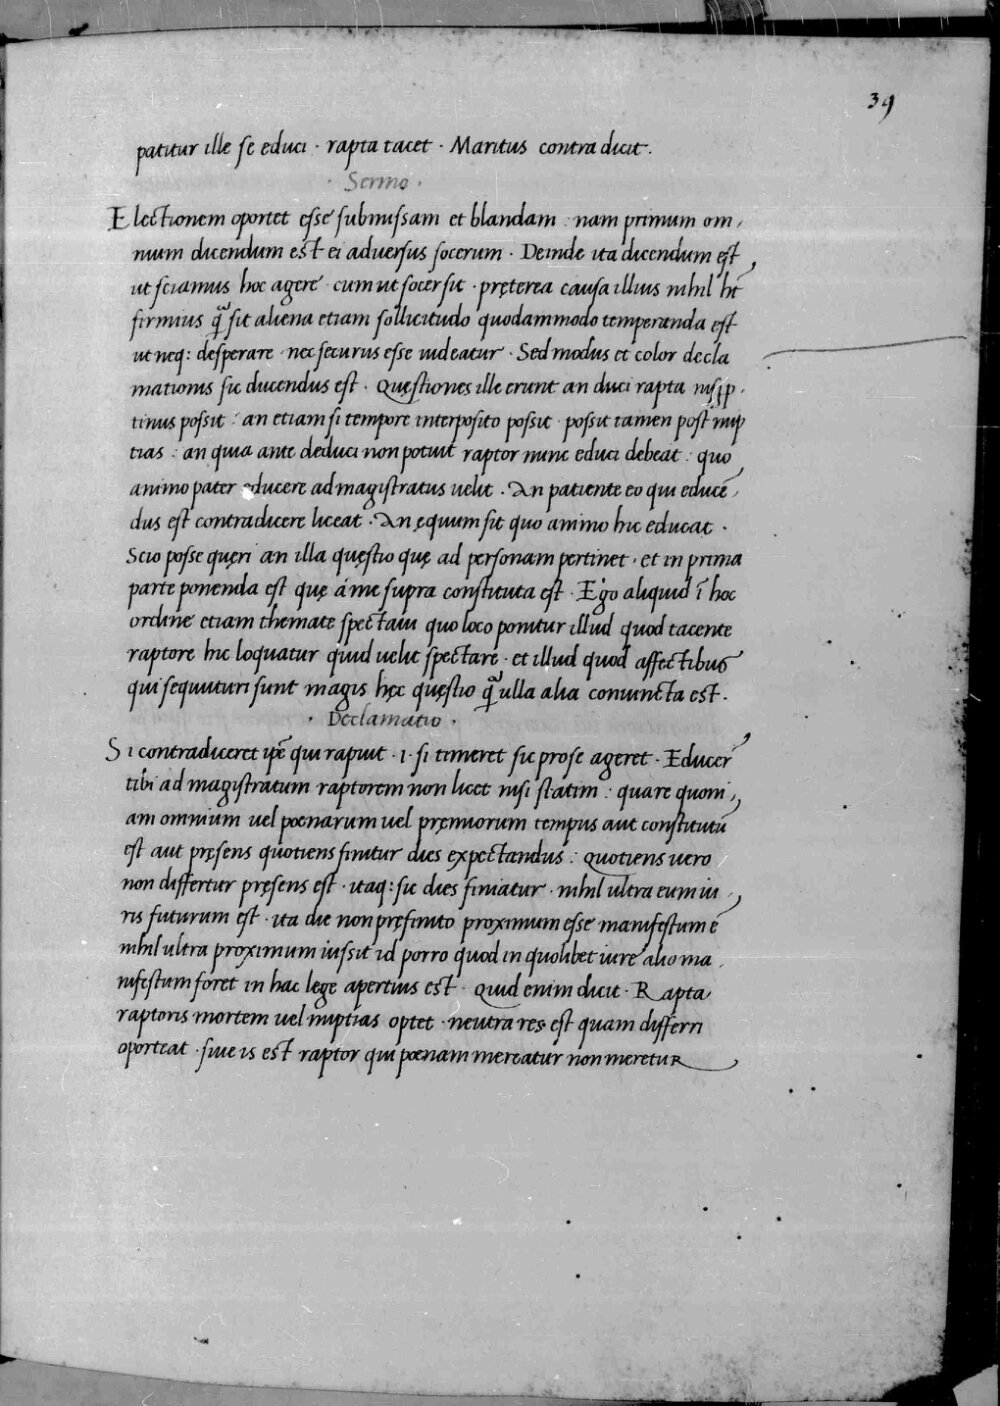 39
patitur ille se educi · rapta tacet · Maritus contradicit.
· Sermo ·
Electionem oportet esse submissam et blandam : nam primum om,
nium dicendum est ei aduersus socerum · Deinde ita dicendum est
ut sciamus hoc agere cum ut socer sit · pręterea causa illius nihil ht̄
firmius q̄ sit aliena etiam sollicitudo quodammodo temperanda est
ut neq: desperare nec securus esse uideatur · Sed modus et color decla
mationis sic ducendus est · Quęstiones ille erunt an duci rapta nisi p .
tinus possit : an etiam si tempore interposito possit · possit tamen post nup
tias : an quia ante deduci non potuit raptor nunc educi debeat : quo
animo pater educere ad magistratus uelit · An patiente eo qui educē,
dus est contradicere liceat · An ęquum sit quo animo hic educat ·
Scio posse quęri an illa quęstio quę ad personam pertinet · et in prima
parte ponenda est quę á me supra constituta est · Ego aliquid ī hoc
ordine etiam themate spectaui quo loco ponitur illud quod tacente
raptore hic loquatur quid uelit spectare · et illud quod affectibus
qui sequuturi sunt magis hęc quęstio q̄ ulla alia coniuncta est .
· Declamatio ·
Si contraduceret ipē qui rapuit · i · si timeret sic pro se ageret · Educer
tibi ad magistratum raptorem non licet nisi statim : quare quoni,
am omnium uel poenarum uel pręmiorum tempus aut constitutū
est aut pręsens quotiens finitur dies expectandus : quotiens uero
non differtur pręsens est · itaq: sic dies finiatur · nihil ultra eum iu ,
ris futurum est · ita die non pręfinito proximum esse manifestum ē
nihil ultra proximum iussit id porro quod in quolibet iure alio ma ,
nifestum foret in hac lege apertius est · Quid enim dicit · Rapta
raptoris mortem uel nuptias optet · neutra res est quam differri
oporteat · siue is est raptor qui poenam mereatur non meretur